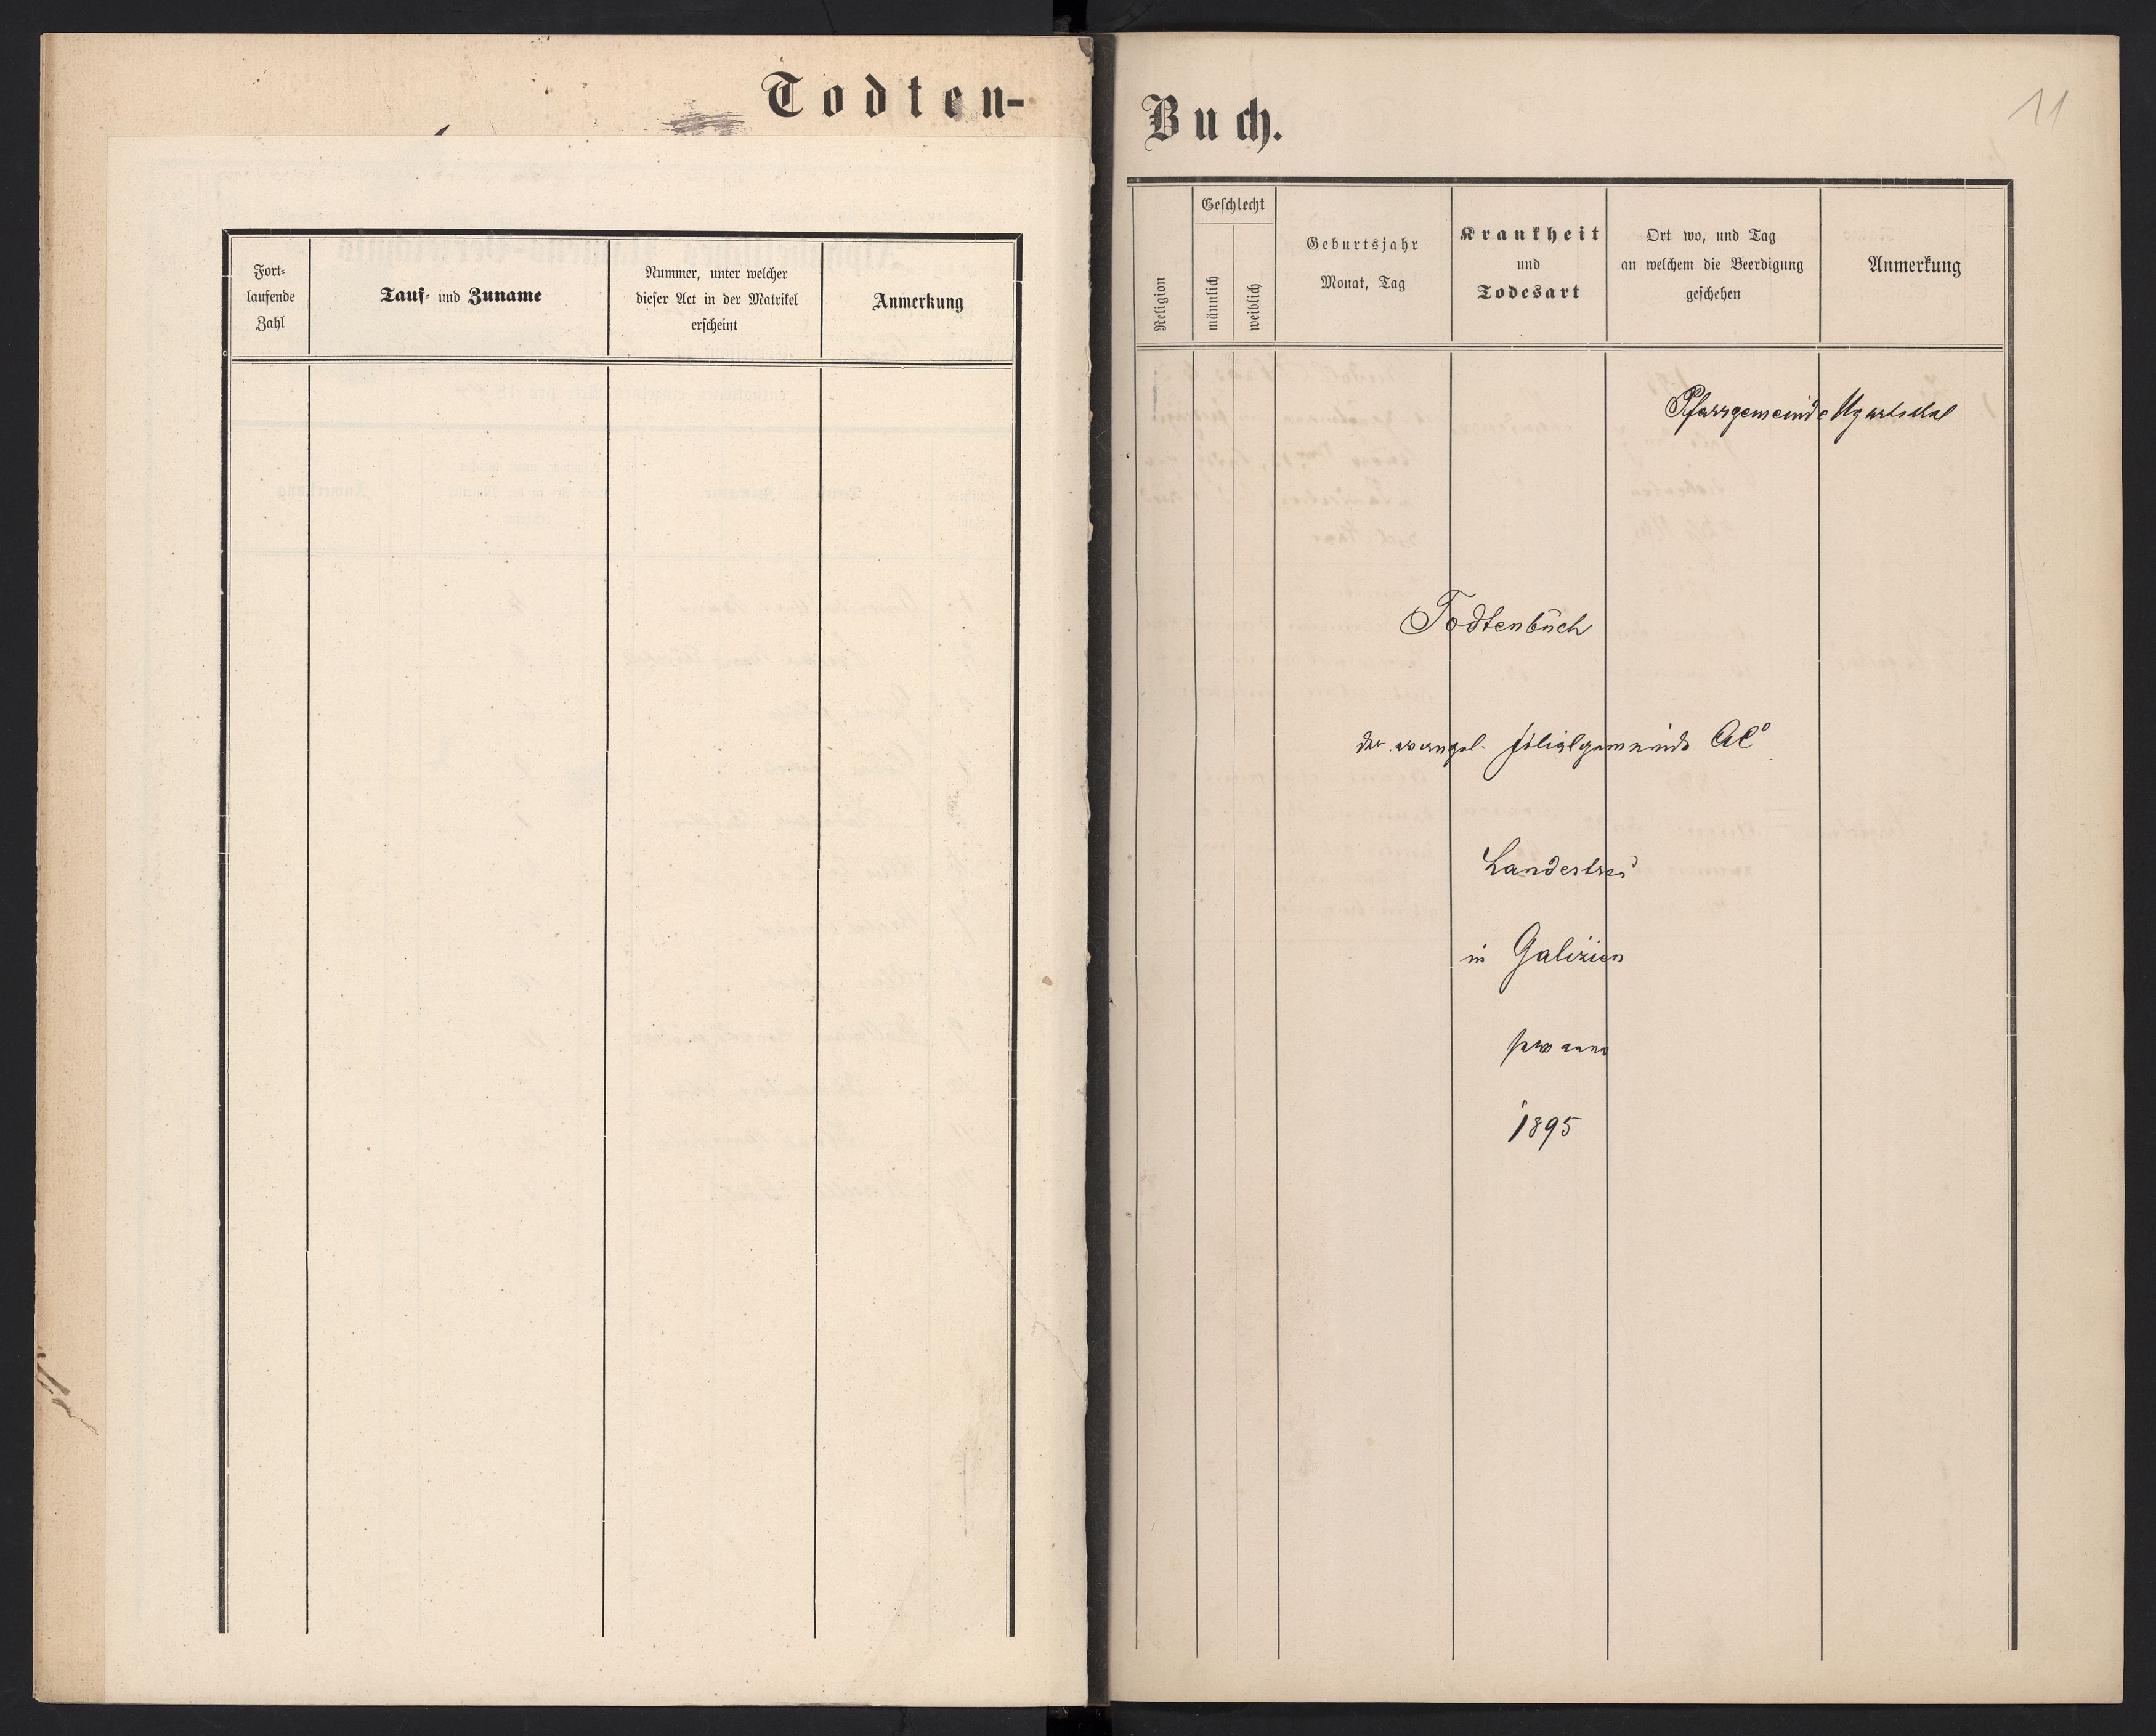 Todten-
Fort-
laufende
Zahl
Tauf- und Zuname
Nummer, unter welcher
dieser Act in der Matrikel
erscheint
Anmerkung
Buch.
11
Religion
Geschlecht
männlich
weiblich
Geburtsjahr
Monat, Tag
Krankheit
und
Todesart
Ort wo, und Tag
an welchem die Beerdigung
geschehen
Anmerkung
Pfarrgemeinde Ugartsthal
Todtenbuch
der evangel. Filialgemeinde AC
Landestreu
in Galizien
pro anno
1895